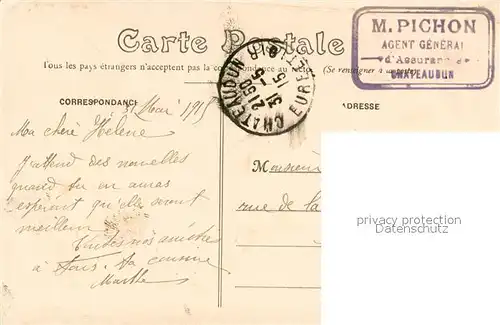 Carte Postale
M. PICHON
AGENT GÉNÉRAL
d'Assurances
CHATEAUDUN
Tous les pays étrangers n'acceptent pas la correspondance au recto. (Se renseigner à la poste)
CHATEAUDUN EURE-ET-LOIR
21 30
31 -5
15
CORRESPONDANCE
ADRESSE
31 Mai 1915
Ma chère Hélène
J'attend des nouvelles
quand tu en auras
espérant qu'elles seront
meilleures
Toutes nos amitiés
à tous. Ta cousine
Marthe
Monsieur
rue de la
privacy protection
Datenschutz